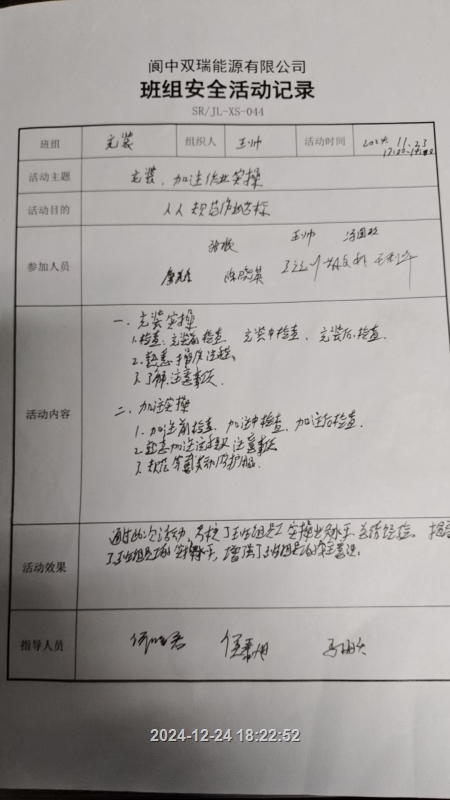 阆中双瑞能源有限公司
班组安全活动记录
SR/JL-XS-044
班组 充装 组织人 王帅 活动时间 2024.11.23
活动主题 充装、加注作业实操
活动目的 人人规范作业达标
参加人员 王帅
活动内容
一、充装实操
1.检查:充装前检查、充装中检查、充装后检查.
2.熟悉操作流程.
3.了解注意事项.
二、加注实操
1.加注前检查、加注中检查、加注后检查.
2.熟悉加注流程及注意事项
3.规范穿戴劳动防护用品.
活动效果
通过此次活动,考核了班组员工实操业务水平,总结经验、
了班组员工的实操水平,增强了班组员工的安全意识.
指导人员
2024-12-24 18:22:52